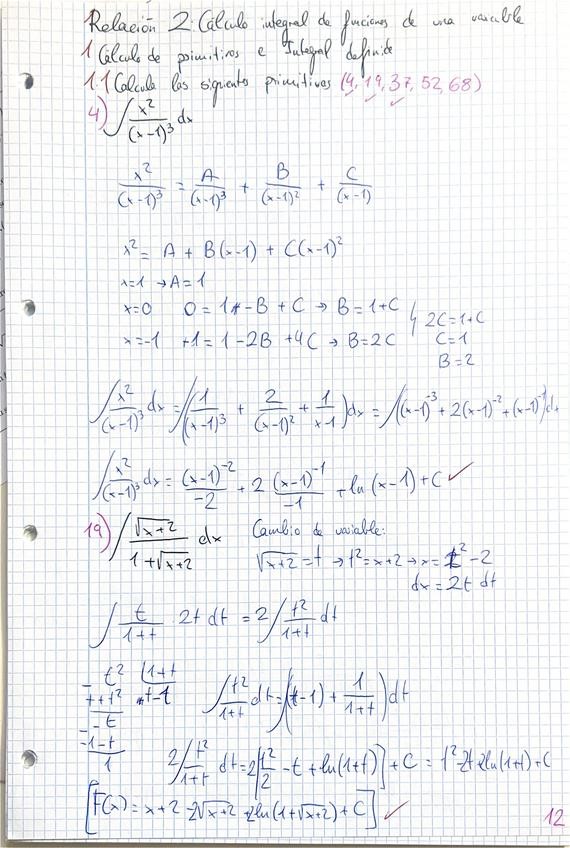 Relación 2. Cálculo integral de funciones de una variable
1 Cálculo de primitivas e Integral definida
1.1 Calcula las siguientes primitivas (4, 19, 37, 52, 68)
4) ∫ x²/(x-1)³ dx
x²/(x-1)³ = A/(x-1)³ + B/(x-1)² + C/(x-1)
x² = A + B(x-1) + C(x-1)²
x=1 → A=1
x=0 0=1-B+C → B=1+C
x=-1 +1=1-2B+4C → B=2C
2C=1+C
C=1
B=2
∫ x²/(x-1)³ dx = ∫(1/(x-1)³ + 2/(x-1)² + 1/x-1)dx = ∫((x-1)⁻³ + 2(x-1)⁻² + (x-1)⁻¹)dx
∫ x²/(x-1)³ dx = (x-1)⁻²/-2 + 2 (x-1)⁻¹/-1 + ln(x-1)+C ✓
19) ∫ √x+2/1+√x+2 dx Cambio de variable:
√x+2 = t → t² = x+2 → x = t²-2
dx = 2t dt
∫ t/1+t 2t dt = 2∫ t²/1+t dt
-t² | 1+t
t+t² t-1
-t
-1-t
1
∫ t²/1+t dt = ∫((t-1) + 1/1+t)dt
2∫ t²/1+t dt = 2[t²/2 - t + ln(1+t)] + C = t²-2t+2ln(1+t)+C
[F(x) = x+2-2√x+2+2ln(1+√x+2)+C] ✓
12